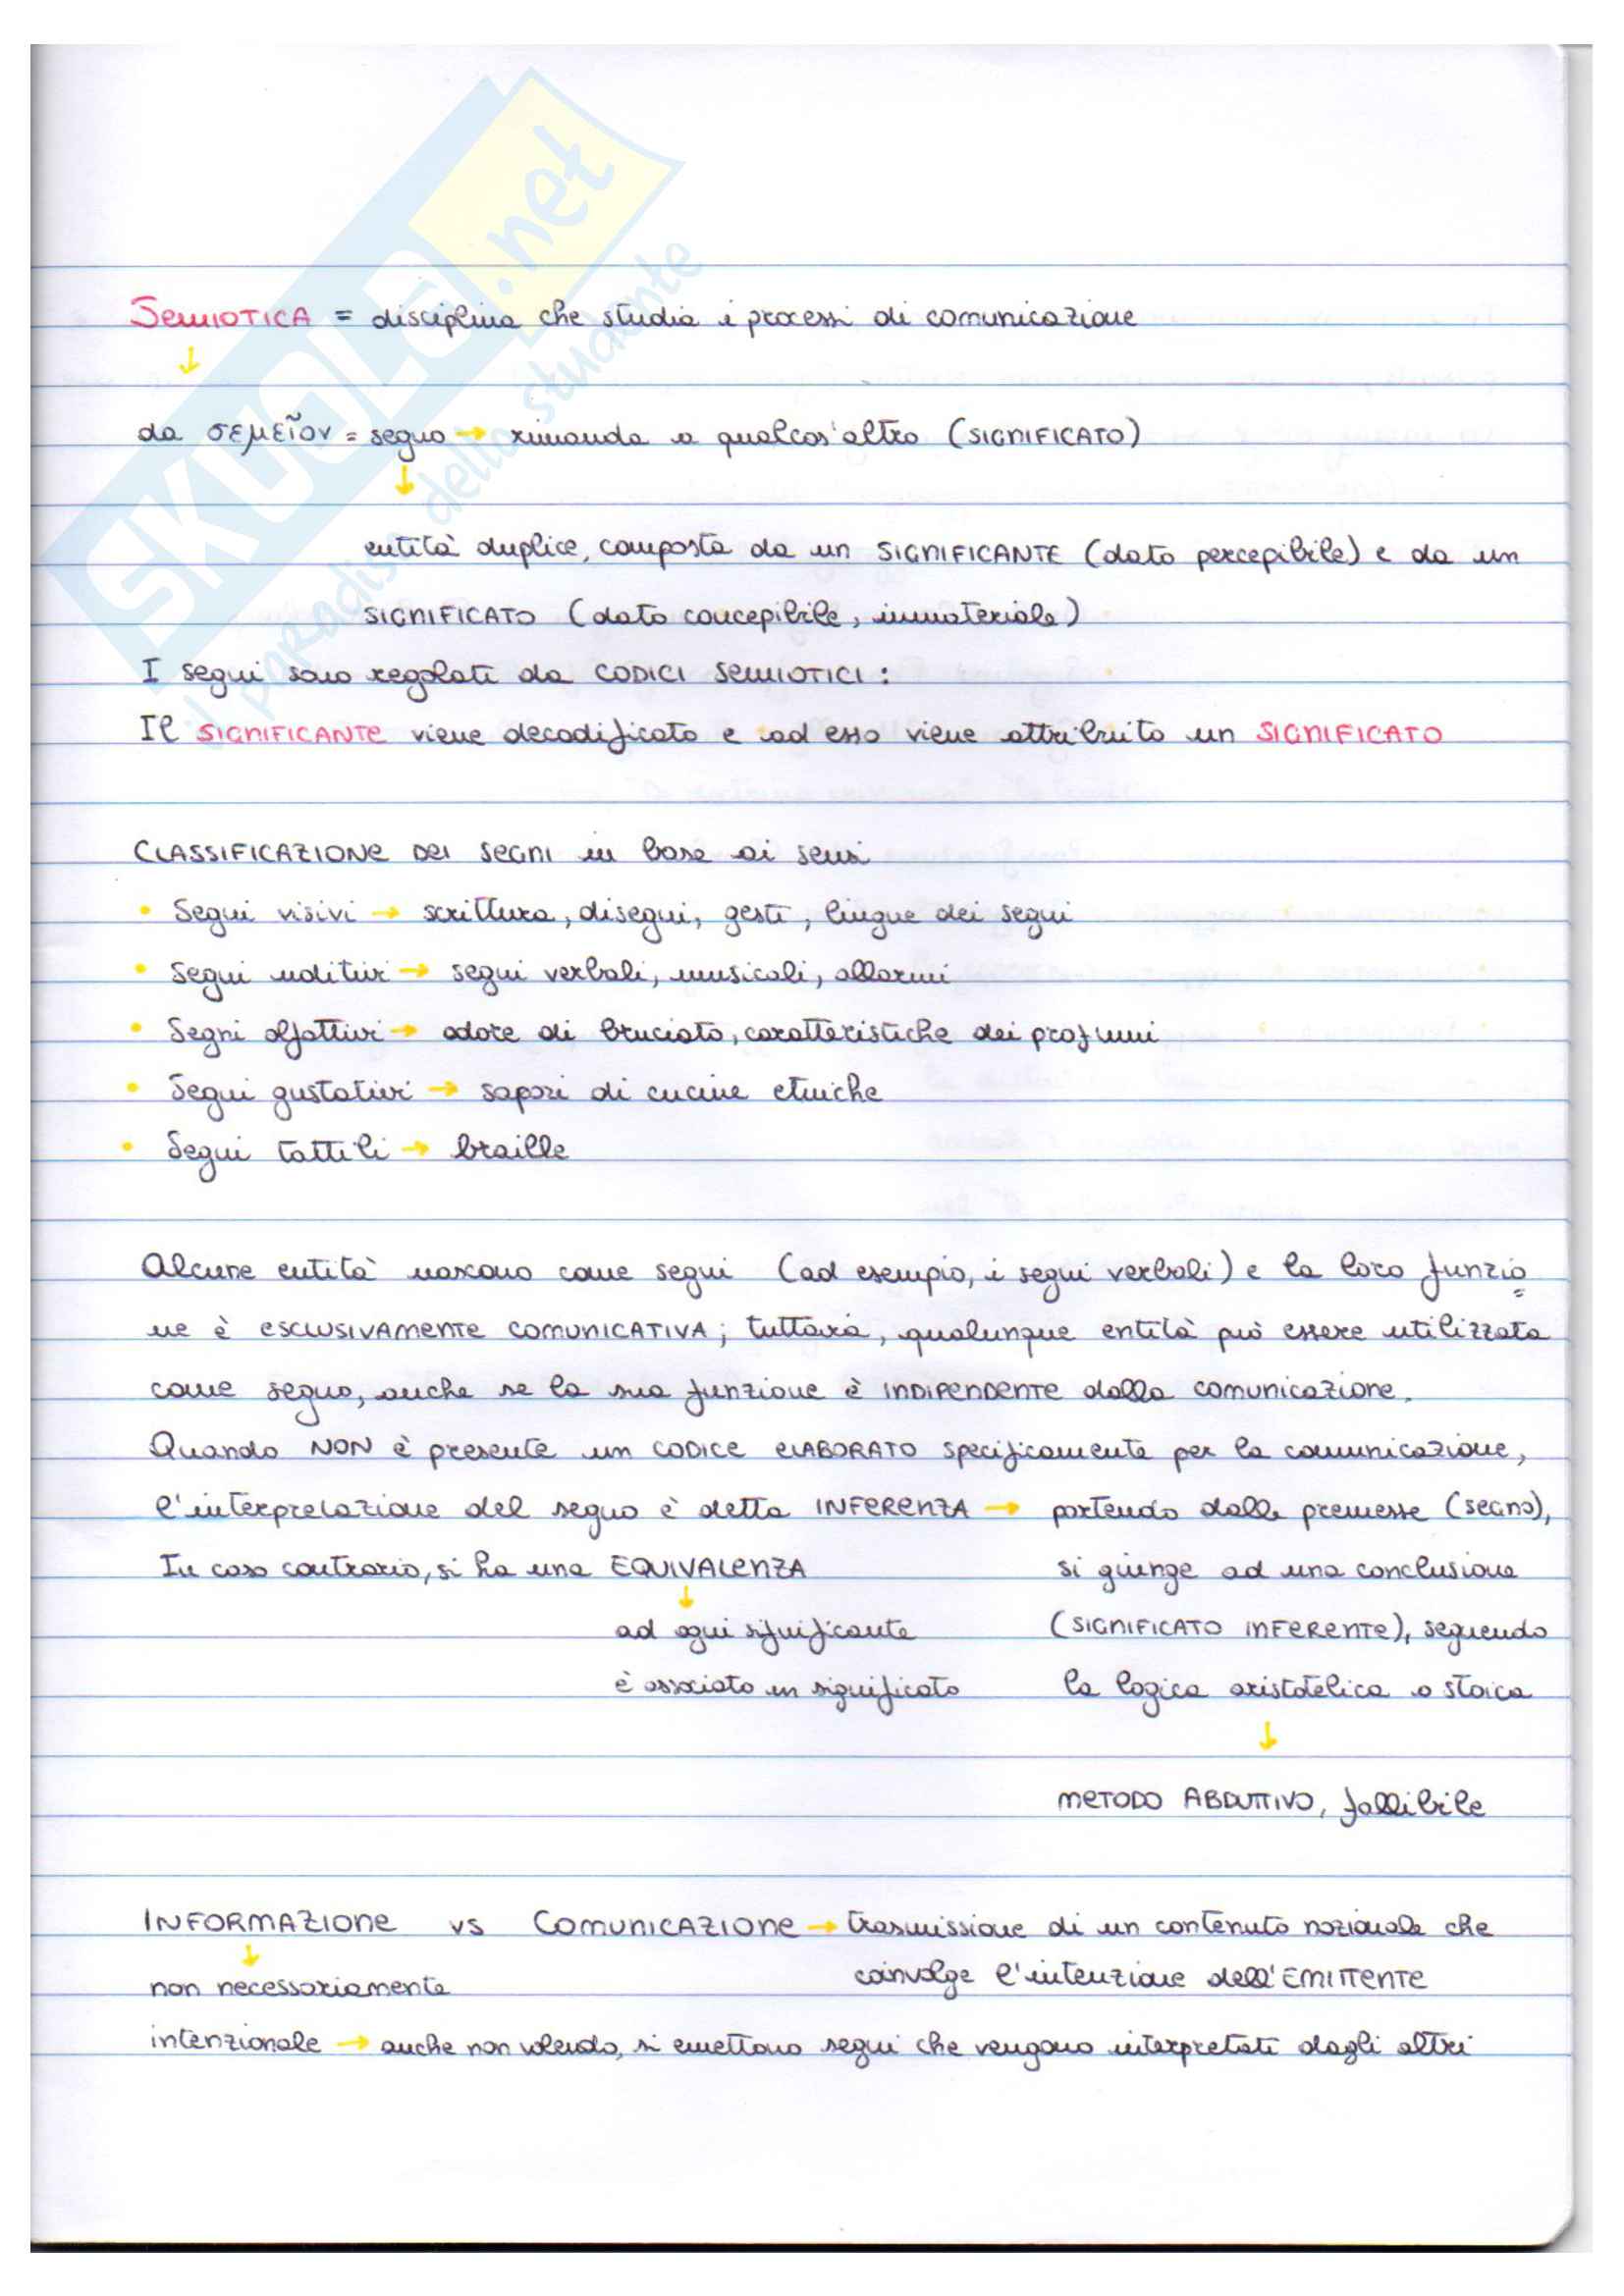 SKUOLA.net
il paradiso dello studente
SEMIOTICA = disciplina che studia i processi di comunicazione
↓
da σεμεῖον = segno → rimanda a qualcos'altro (SIGNIFICATO)
↓
entità duplice, composta da un SIGNIFICANTE (dato percepibile) e da un
SIGNIFICATO (dato concepibile, immateriale)
I segni sono regolati da CODICI SEMIOTICI:
Il SIGNIFICANTE viene decodificato e ad esso viene attribuito un SIGNIFICATO
CLASSIFICAZIONE DEI SEGNI in base ai sensi
• Segni visivi → scrittura, disegni, gesti, lingue dei segni
• Segni uditivi → segni verbali, musicali, allarmi
• Segni olfattivi → odore di bruciato, caratteristiche dei profumi
• Segni gustativi → sapori di cucine etniche
• Segni tattili → braille
Alcune entità nascono come segni (ad esempio, i segni verbali) e la loro funzio=
ne è ESCLUSIVAMENTE COMUNICATIVA; tuttavia, qualunque entità può essere utilizzata
come segno, anche se la sua funzione è INDIPENDENTE dalla comunicazione.
Quando NON è presente un CODICE ELABORATO specificamente per la comunicazione,
l'interpretazione del segno è detta INFERENZA → partendo dalle premesse (segno),
In caso contrario, si ha una EQUIVALENZA si giunge ad una conclusione
↓
ad ogni significante (SIGNIFICATO INFERENTE), seguendo
è associato un significato la logica aristotelica o stoica
↓
METODO ABDUTTIVO, fallibile
INFORMAZIONE vs COMUNICAZIONE → trasmissione di un contenuto nozionale che
↓ coinvolge l'intenzione dell'EMITTENTE
non necessariamente
intenzionale → anche non volendo, si emettono segni che vengono interpretati dagli altri